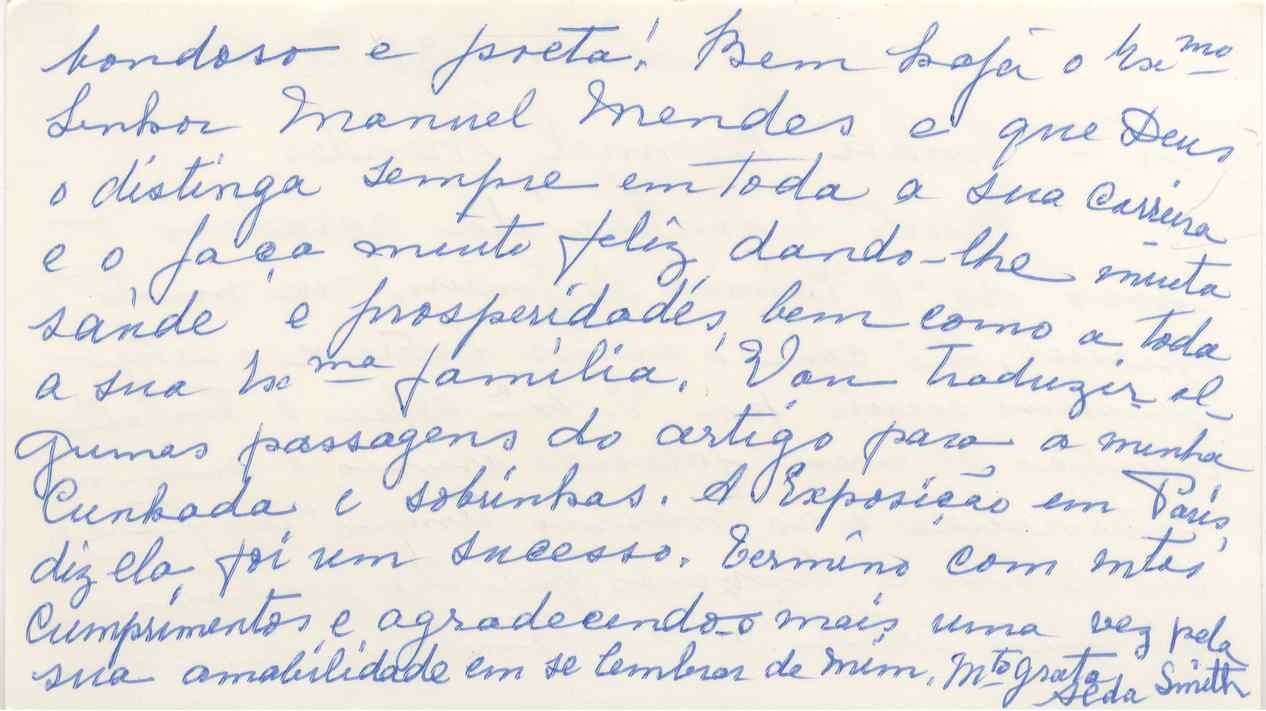 bondoso e poeta! Bem haja o Exmo
Senhor Manuel Mendes e que Deus
o distinga sempre em toda a sua carreira
e o faça muito feliz, dando-lhe muita
saúde e prosperidades, bem como a toda
a sua Exma família! Vou traduzir al-
gumas passagens do artigo para a minha
Cunhada e sobrinhas. A Exposição em Paris,
diz ela, foi um sucesso. Termino com mtos
Cumprimentos e agradecendo mais uma vez pela
sua amabilidade em se lembrar de mim, Mto grata
Seda Smith